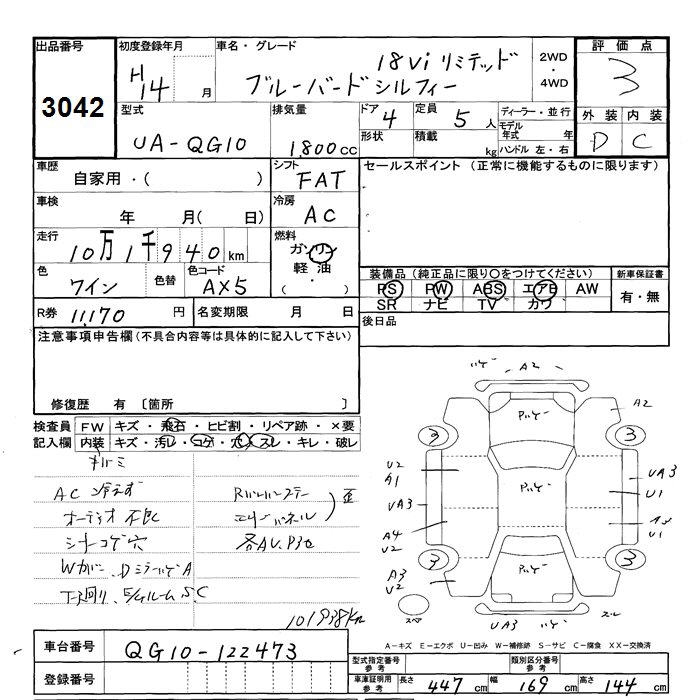 出品番号 初度登録年月 車名・グレード 2WD・4WD 評価点
3042 H14 月 18Vi リミテッド 3
ブルーバードシルフィー
型式 排気量 ドア 4 定員 5 人 ディーラー・並行 外装 内装
UA-QG10 1800cc 形状 積載 kg モデル年式 年 D C
ハンドル 左・右
車歴 シフト セールスポイント (正常に機能するものに限ります)
自家用・( ) FAT
車検 年 月( 日) 冷房 AC
走行 10万1千940km 燃料 ガソリン
軽油
( ・ )
色 ワイン 色替 色コード AX5
装備品 (純正品に限り○をつけてください) 新車保証書
PS PW ABS エアB AW 有・無
SR ナビ TV カワ
R券 11,170 円 名変期限 月 日 後日品
注意事項申告欄(不具合内容等は具体的に記入して下さい)
修復歴 有 〔箇所 〕
検査員記入欄 FW キズ・飛石・ヒビ割・リペア跡・×要
内装 キズ・汚れ・コゲ・穴・スレ・キレ・破レ
キバミ
AC冷えず
オーディオ不良
シートコゲ穴
Wカバー、DミラーA
下廻り、E/gルームS.C
Rバックパネル
各AU.P3
101938km
A2
A2
3 3
U2
A1
UA3
U1
UA3
A4
U2
U1
A3
U2
3 3
UA3
スペア
A-キズ E-エクボ U-凹み W-補修跡 S-サビ C-腐食 XX-交換済
車台番号 QG10-122473
登録番号
型式指定番号参考 類別区分番号参考
車庫証明用参考 長さ 447 cm 幅 169 cm 高さ 144 cm